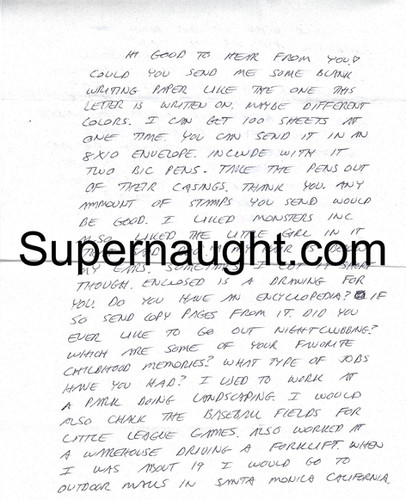 HI GOOD TO HEAR FROM YOU.
COULD YOU SEND ME SOME BLANK
WRITING PAPER LIKE THE ONE THIS
LETTER IS WRITTEN ON. MAYBE DIFFERENT
COLORS. I CAN GET 100 SHEETS AT
ONE TIME. YOU CAN SEND IT IN AN
8X10 ENVELOPE. INCLUDE WITH IT
TWO BIC PENS. TAKE THE PENS OUT
OF THEIR CASINGS. THANK YOU. ANY
AMMOUNT OF STAMPS YOU SEND WOULD
BE GOOD. I LIKED MONSTERS INC
ALSO LIKED THE LITTLE GIRL IN IT
Supernaught.com
MY EARS. SOMETIMES I CUT IT SHORT
THOUGH. ENCLOSED IS A DRAWING FOR
YOU. DO YOU HAVE AN ENCYCLOPEDIA? IF
SO SEND COPY PAGES FROM IT. DID YOU
EVER LIKE TO GO OUT NIGHTCLUBBING?
WHICH ARE SOME OF YOUR FAVORITE
CHILDHOOD MEMORIES? WHAT TYPE OF JOBS
HAVE YOU HAD? I USED TO WORK AT
A PARK DOING LANDSCAPING. I WOULD
ALSO CHALK THE BASEBALL FIELDS FOR
LITTLE LEAGUE GAMES. ALSO WORKED AT
A WAREHOUSE DRIVING A FORKLIFT. WHEN
I WAS ABOUT 19 I WOULD GO TO
OUTDOOR MALLS IN SANTA MONICA CALIFORNIA.